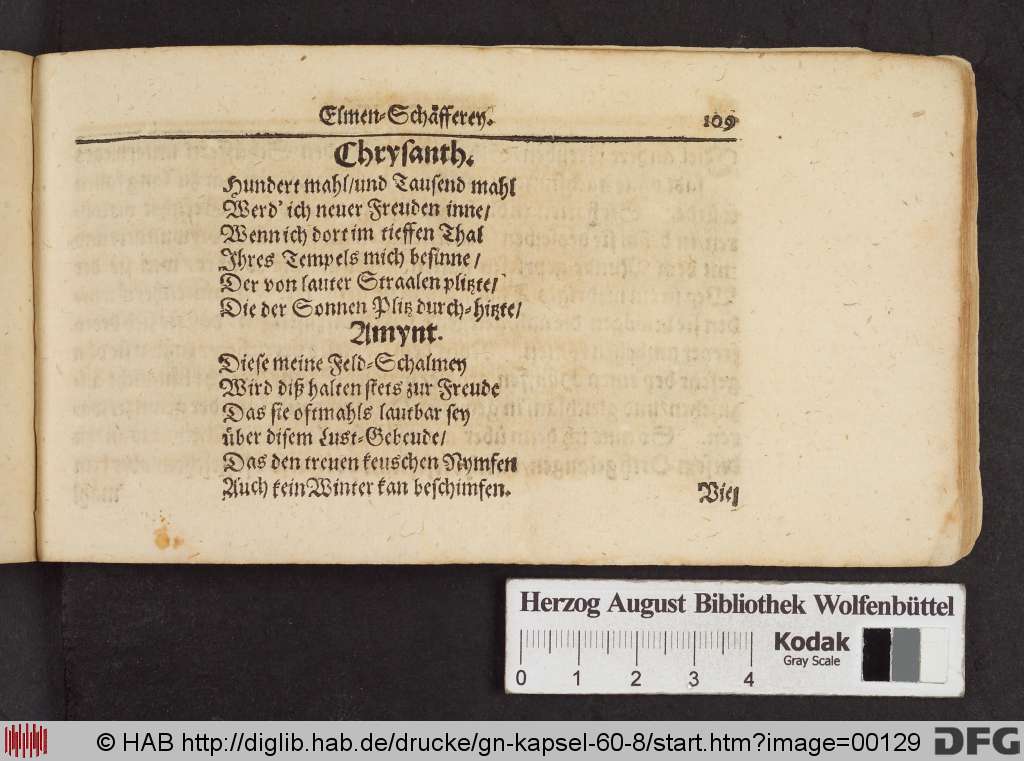 Elmen-Schäfferey. 109
Chrysanth.
Hundert mahl/und Tausend mahl
Werd' ich neuer Freuden inne/
Wenn ich dort im tieffen Thal
Ihres Tempels mich besinne/
Der von lauter Straalen plitzte/
Die der Sonnen Plitz durch-hitzte/
Amynt.
Diese meine Feld-Schalmey
Wird diß halten stets zur Freude
Das sie oftmahls lautbar sey
über disem Lust-Gebeude/
Das den treuen keuschen Nymfen
Auch kein Winter kan beschimfen.
Viel
Herzog August Bibliothek Wolfenbüttel
Kodak
Gray Scale
0 1 2 3 4
© HAB http://diglib.hab.de/drucke/gn-kapsel-60-8/start.htm?image=00129
DFG